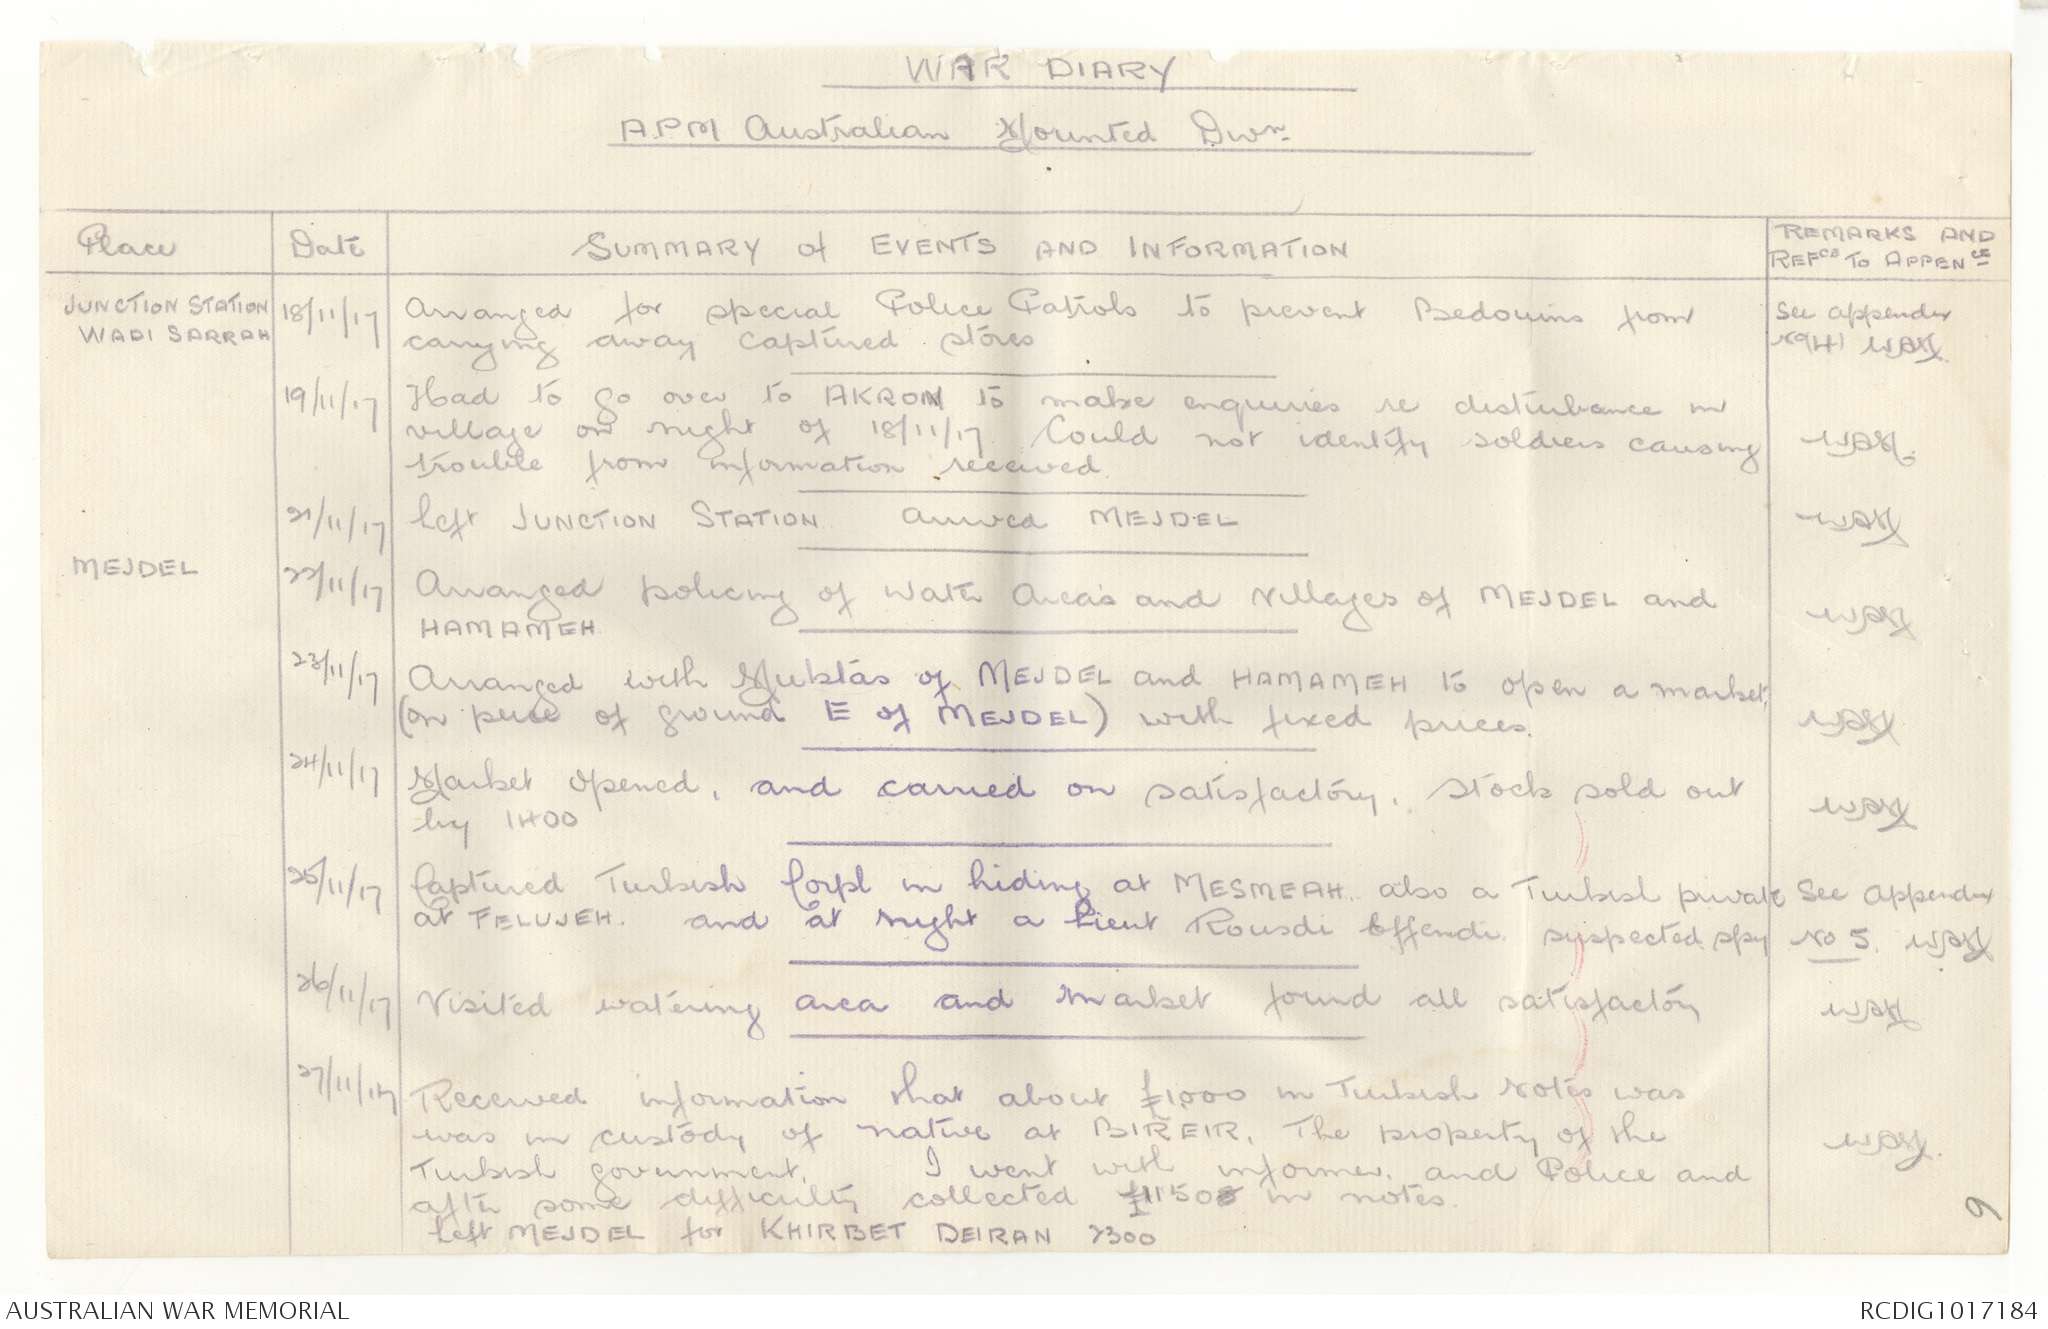 WAR DIARY
APM Australian Mounted Divn.
Place
Date
SUMMARY of EVENTS AND INFORMATION
REMARKS AND
REFCES TO APPENCE
JUNCTION STATION
WADI SARRAH
18/11/17
Arranged for special Police Patrols to prevent Bedouins from
carrying away captured stores
See appendix
No 4
19/11/17
Had to go over to AKRON to make enquiries re disturbance in
village on night of 18/11/17 Could not identify soldiers causing
trouble from information received.
21/11/17
left JUNCTION STATION Arrived MEJDEL
MEJDEL
22/11/17
Arranged policing of Water Areas and Villages of MEJDEL and
HAMAMEH
23/11/17
Arranged with Muktas of MEJDEL and HAMAMEH to open a market,
(on peice of ground E of MEJDEL) with fixed prices.
24/11/17
Market opened, and carried on satisfactory, Stock sold out
by 1400
25/11/17
Captured Turkish Corpl in hiding at MESMEAH. also a Turkish private
at FELUJEH. and at night a Lieut Rousdi Effendi. suspected spy
See Appendix
No 5.
26/11/17
Visited watering area and market found all satisfactory
27/11/17
Received information that about £1,000 in Turkish Notes was
was in custody of native at BIREIR, The property of the
Turkish government. I went with informer, and Police and
after some difficulty collected £1150 in notes.
left MEJDEL for KHIRBET DEIRAN 2300
9
AUSTRALIAN WAR MEMORIAL
RCDIG1017184